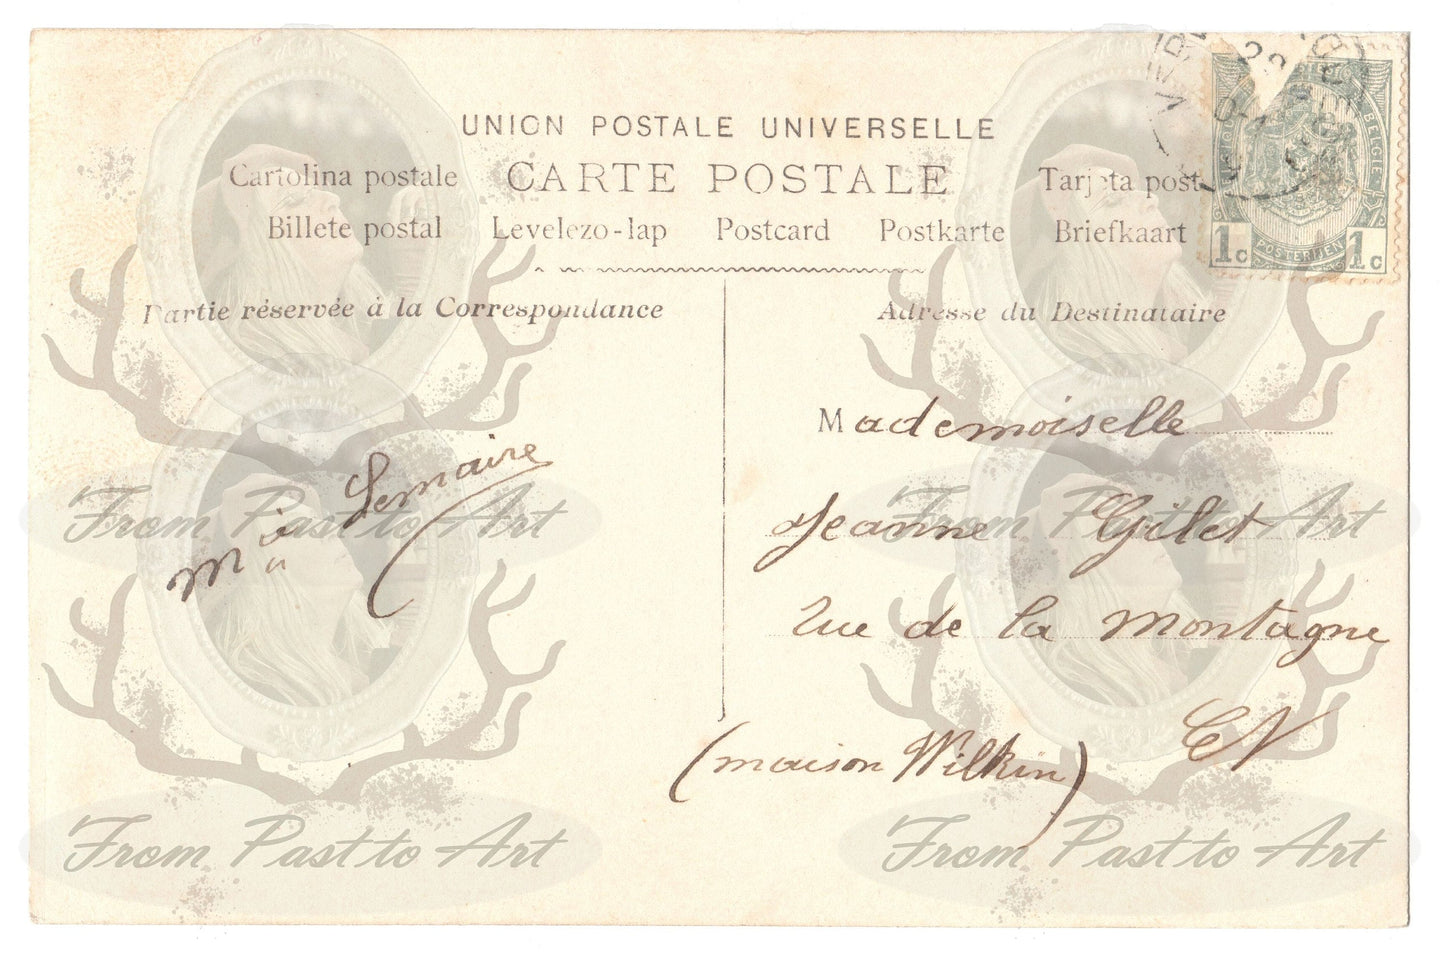 UNION POSTALE UNIVERSELLE
Cartolina postale CARTE POSTALE Tarjeta post
Billete postal Levelezo-lap Postcard Postkarte Briefkaart
Partie réservée à la Correspondance
Adresse du Destinataire
BELGIE
1c POSTERIJEN 1c
Mademoiselle
Jeanne Gilet
rue de la montagne
EV
(maison Wilkin)
Lemaire
From Past to Art From Past to Art
From Past to Art From Past to Art